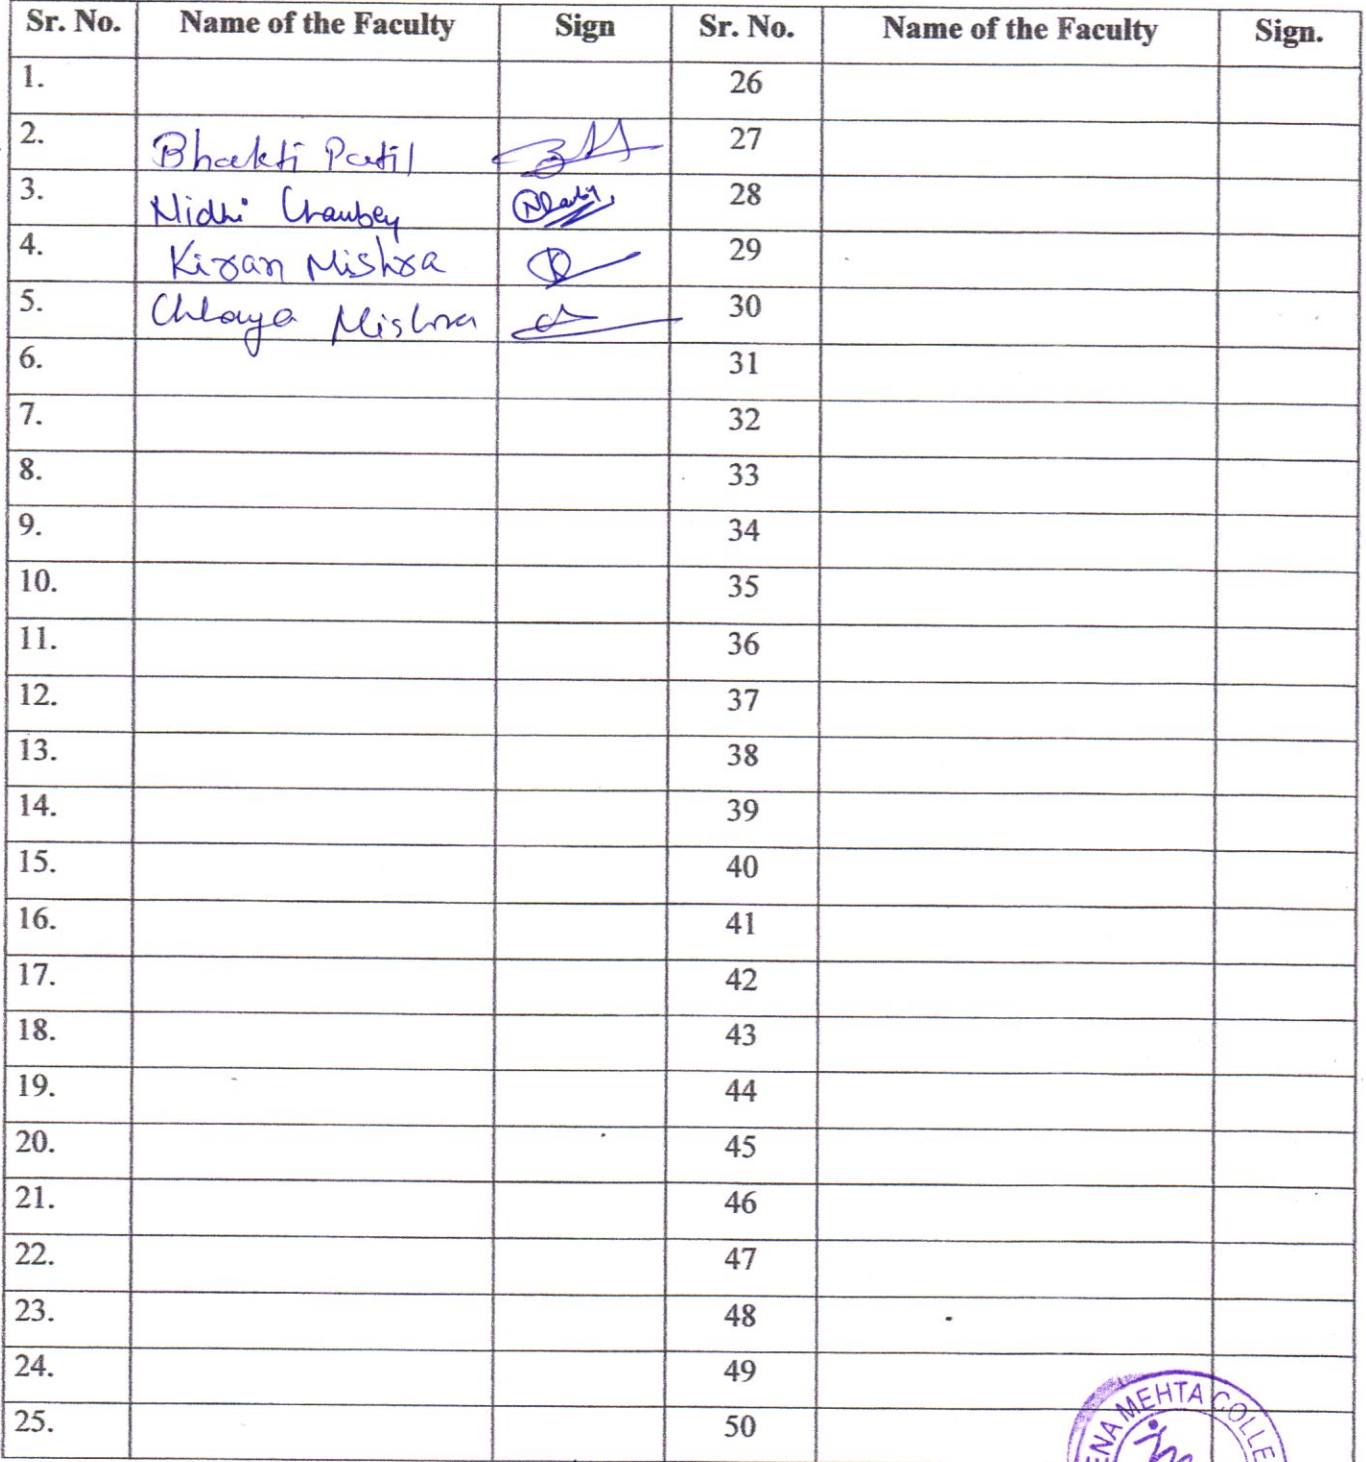 Sr. No. Name of the Faculty Sign Sr. No. Name of the Faculty Sign.
1. 26
2. Bhakti Patil 27
3. Nidhi Chaubey 28
4. Kiran Mishra 29
5. Chhaya Mishra 30
6. 31
7. 32
8. 33
9. 34
10. 35
11. 36
12. 37
13. 38
14. 39
15. 40
16. 41
17. 42
18. 43
19. 44
20. 45
21. 46
22. 47
23. 48
24. 49
25. 50
ENA MEHTA COLLE